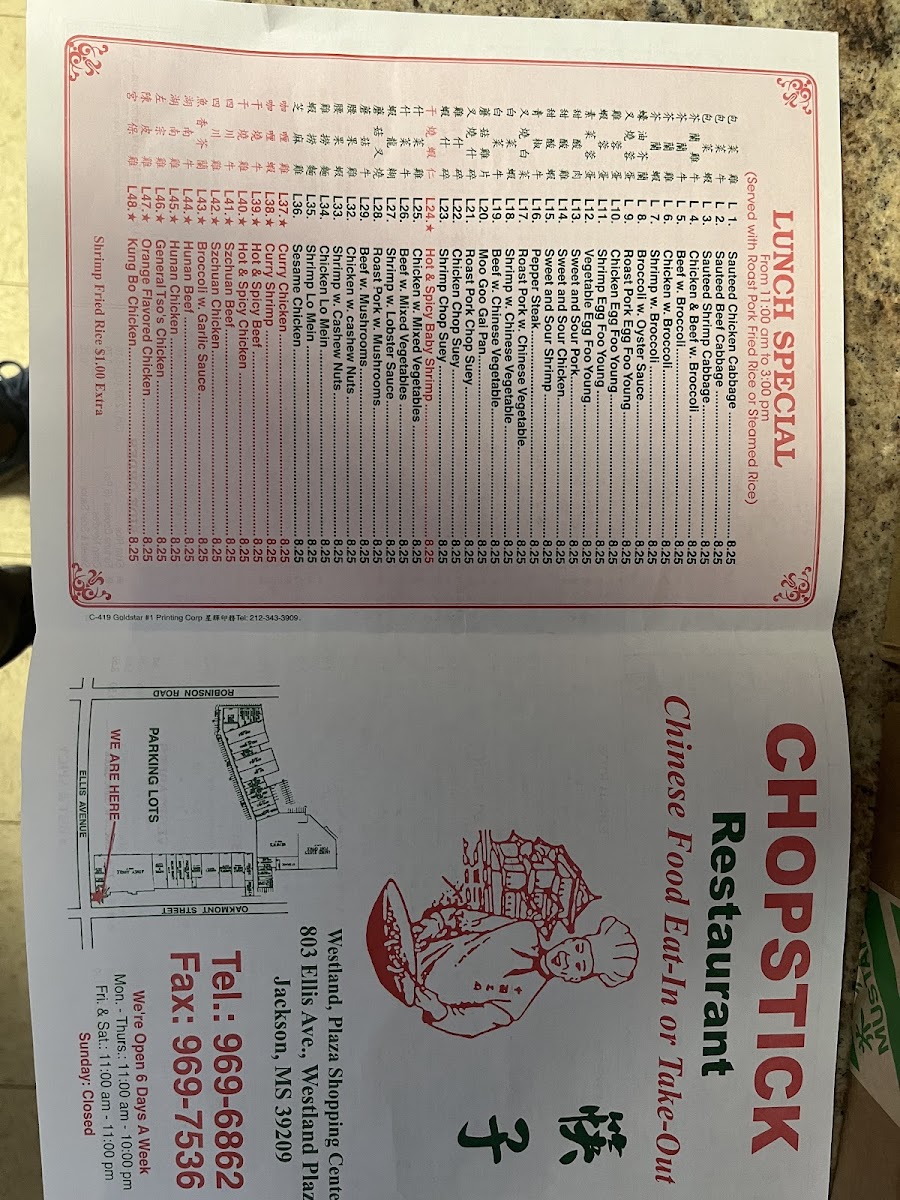 LUNCH SPECIAL
From 11:00 am to 3:00 pm
(Served with Roast Pork Fried Rice or Steamed Rice)
包菜雞 L 1. Sauteed Chicken Cabbage 8.25
包菜牛 L 2. Sauteed Beef Cabbage 8.25
包菜蝦 L 3. Sauteed Shrimp Cabbage 8.25
芥蘭雞牛 L 4. Chicken & Beef w. Broccoli 8.25
芥蘭牛 L 5. Beef w. Broccoli 8.25
芥蘭雞 L 6. Chicken w. Broccoli 8.25
芥蘭蝦 L 7. Shrimp w. Broccoli 8.25
蠔油芥蘭 L 8. Broccoli w. Oyster Sauce 8.25
叉燒蓉蛋 L 9. Roast Pork Egg Foo Young 8.25
雞蓉蛋 L10. Chicken Egg Foo Young 8.25
蝦蓉蛋 L11. Shrimp Egg Foo Young 8.25
素菜蓉蛋 L12. Vegetable Egg Foo Young 8.25
甜酸肉 L13. Sweet and Sour Pork 8.25
甜酸雞 L14. Sweet and Sour Chicken 8.25
甜酸蝦 L15. Sweet and Sour Shrimp 8.25
青椒牛 L16. Pepper Steak 8.25
叉燒白菜 L17. Roast Pork w. Chinese Vegetable 8.25
白菜蝦 L18. Shrimp w. Chinese Vegetable 8.25
白菜牛 L19. Beef w. Chinese Vegetable 8.25
蘑菇雞片 L20. Moo Goo Gai Pan 8.25
叉燒什碎 L21. Roast Pork Chop Suey 8.25
雞什碎 L22. Chicken Chop Suey 8.25
蝦什碎 L23. Shrimp Chop Suey 8.25
干燒蝦仁 L24.★ Hot & Spicy Baby Shrimp 8.25
什菜雞 L25. Chicken w. Mixed Vegetables 8.25
什菜牛 L26. Beef w. Mixed Vegetables 8.25
蝦龍糊 L27. Shrimp w. Lobster Sauce 8.25
蘑菇叉燒 L28. Roast Pork w. Mushrooms 8.25
蘑菇牛 L29. Beef w. Mushrooms 8.25
腰果雞 L32. Chicken w. Cashew Nuts 8.25
腰果蝦 L33. Shrimp w. Cashew Nuts 8.25
雞撈麵 L34. Chicken Lo Mein 8.25
蝦撈麵 L35. Shrimp Lo Mein 8.25
芝麻雞 L36. Sesame Chicken 8.25
咖喱雞 L37.★ Curry Chicken 8.25
咖喱蝦 L38.★ Curry Shrimp 8.25
干燒牛 L39.★ Hot & Spicy Beef 8.25
干燒雞 L40.★ Hot & Spicy Chicken 8.25
四川牛 L41.★ Szchuan Beef 8.25
四川雞 L42.★ Szchuan Chicken 8.25
魚香芥蘭 L43.★ Broccoli w. Garlic Sauce 8.25
湖南牛 L44.★ Hunan Beef 8.25
湖南雞 L45.★ Hunan Chicken 8.25
左宗雞 L46.★ General Tso's Chicken 8.25
陳皮雞 L47.★ Orange Flavored Chicken 8.25
宮保雞 L48.★ Kung Bo Chicken 8.25
Shrimp Fried Rice $1.00 Extra
C-419 Goldstar #1 Printing Corp 星輝印務 Tel: 212-343-3909.
CHOPSTICK
Restaurant
Chinese Food Eat-In or Take-Out
筷子
ROBINSON ROAD
PARKING LOTS
WE ARE HERE
ELLIS AVENUE
OAKMONT STREET
Westland, Plaza Shopping Cente
803 Ellis Ave., Westland Plaz
Jackson, MS 39209
Tel.: 969-6862
Fax: 969-7536
We're Open 6 Days A Week
Mon. - Thurs.: 11:00 am - 10:00 pm
Fri. & Sat.: 11:00 am - 11:00 pm
Sunday: Closed
MUSTA